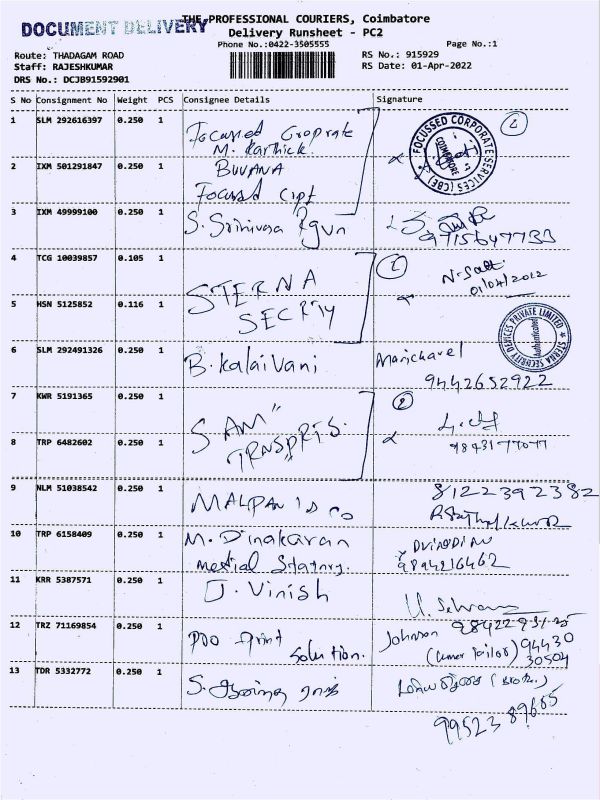 DOCUMENT DELIVERY
THE PROFESSIONAL COURIERS, Coimbatore
Delivery Runsheet - PC2
Phone No.:0422-3505555
Page No.:1
Route: THADAGAM ROAD
RS No.: 915929
Staff: RAJESHKUMAR
RS Date: 01-Apr-2022
DRS No.: DCJB91592901
S No Consignment No Weight PCS Consignee Details Signature
1 SLM 292616397 0.250 1 Focussed Croprate
M. Karthick.
FOCUSSED CORPORATE SERVICES (CBE)
COIMBATORE
2 IXM 501291847 0.250 1 BUVANA
Focused
3 IXM 49999100 0.250 1 S. Srinivasa
9715647733
4 TCG 10039857 0.105 1 STERNA
01/04/2022
5 HSN 5125852 0.116 1 SECRTY
STERNA SECURITY DEVICES PRIVATE LIMITED
6 SLM 292491326 0.250 1 B. Kalaivani
9442652922
7 KWR 5191365 0.250 1 SAM"
8 TRP 6482602 0.250 1 TRNSPRTS.
9 NLM 51038542 0.250 1 MALPANI & CO
8122392382
10 TRP 6158409 0.250 1 M. Dinakaran
Medial
9894216462
11 KRR 5387571 0.250 1 J. Vinish
12 TRZ 71169854 0.250 1 Print
Solution.
Johnson
94430
30504
13 TDR 5332772 0.250 1
99523 89665